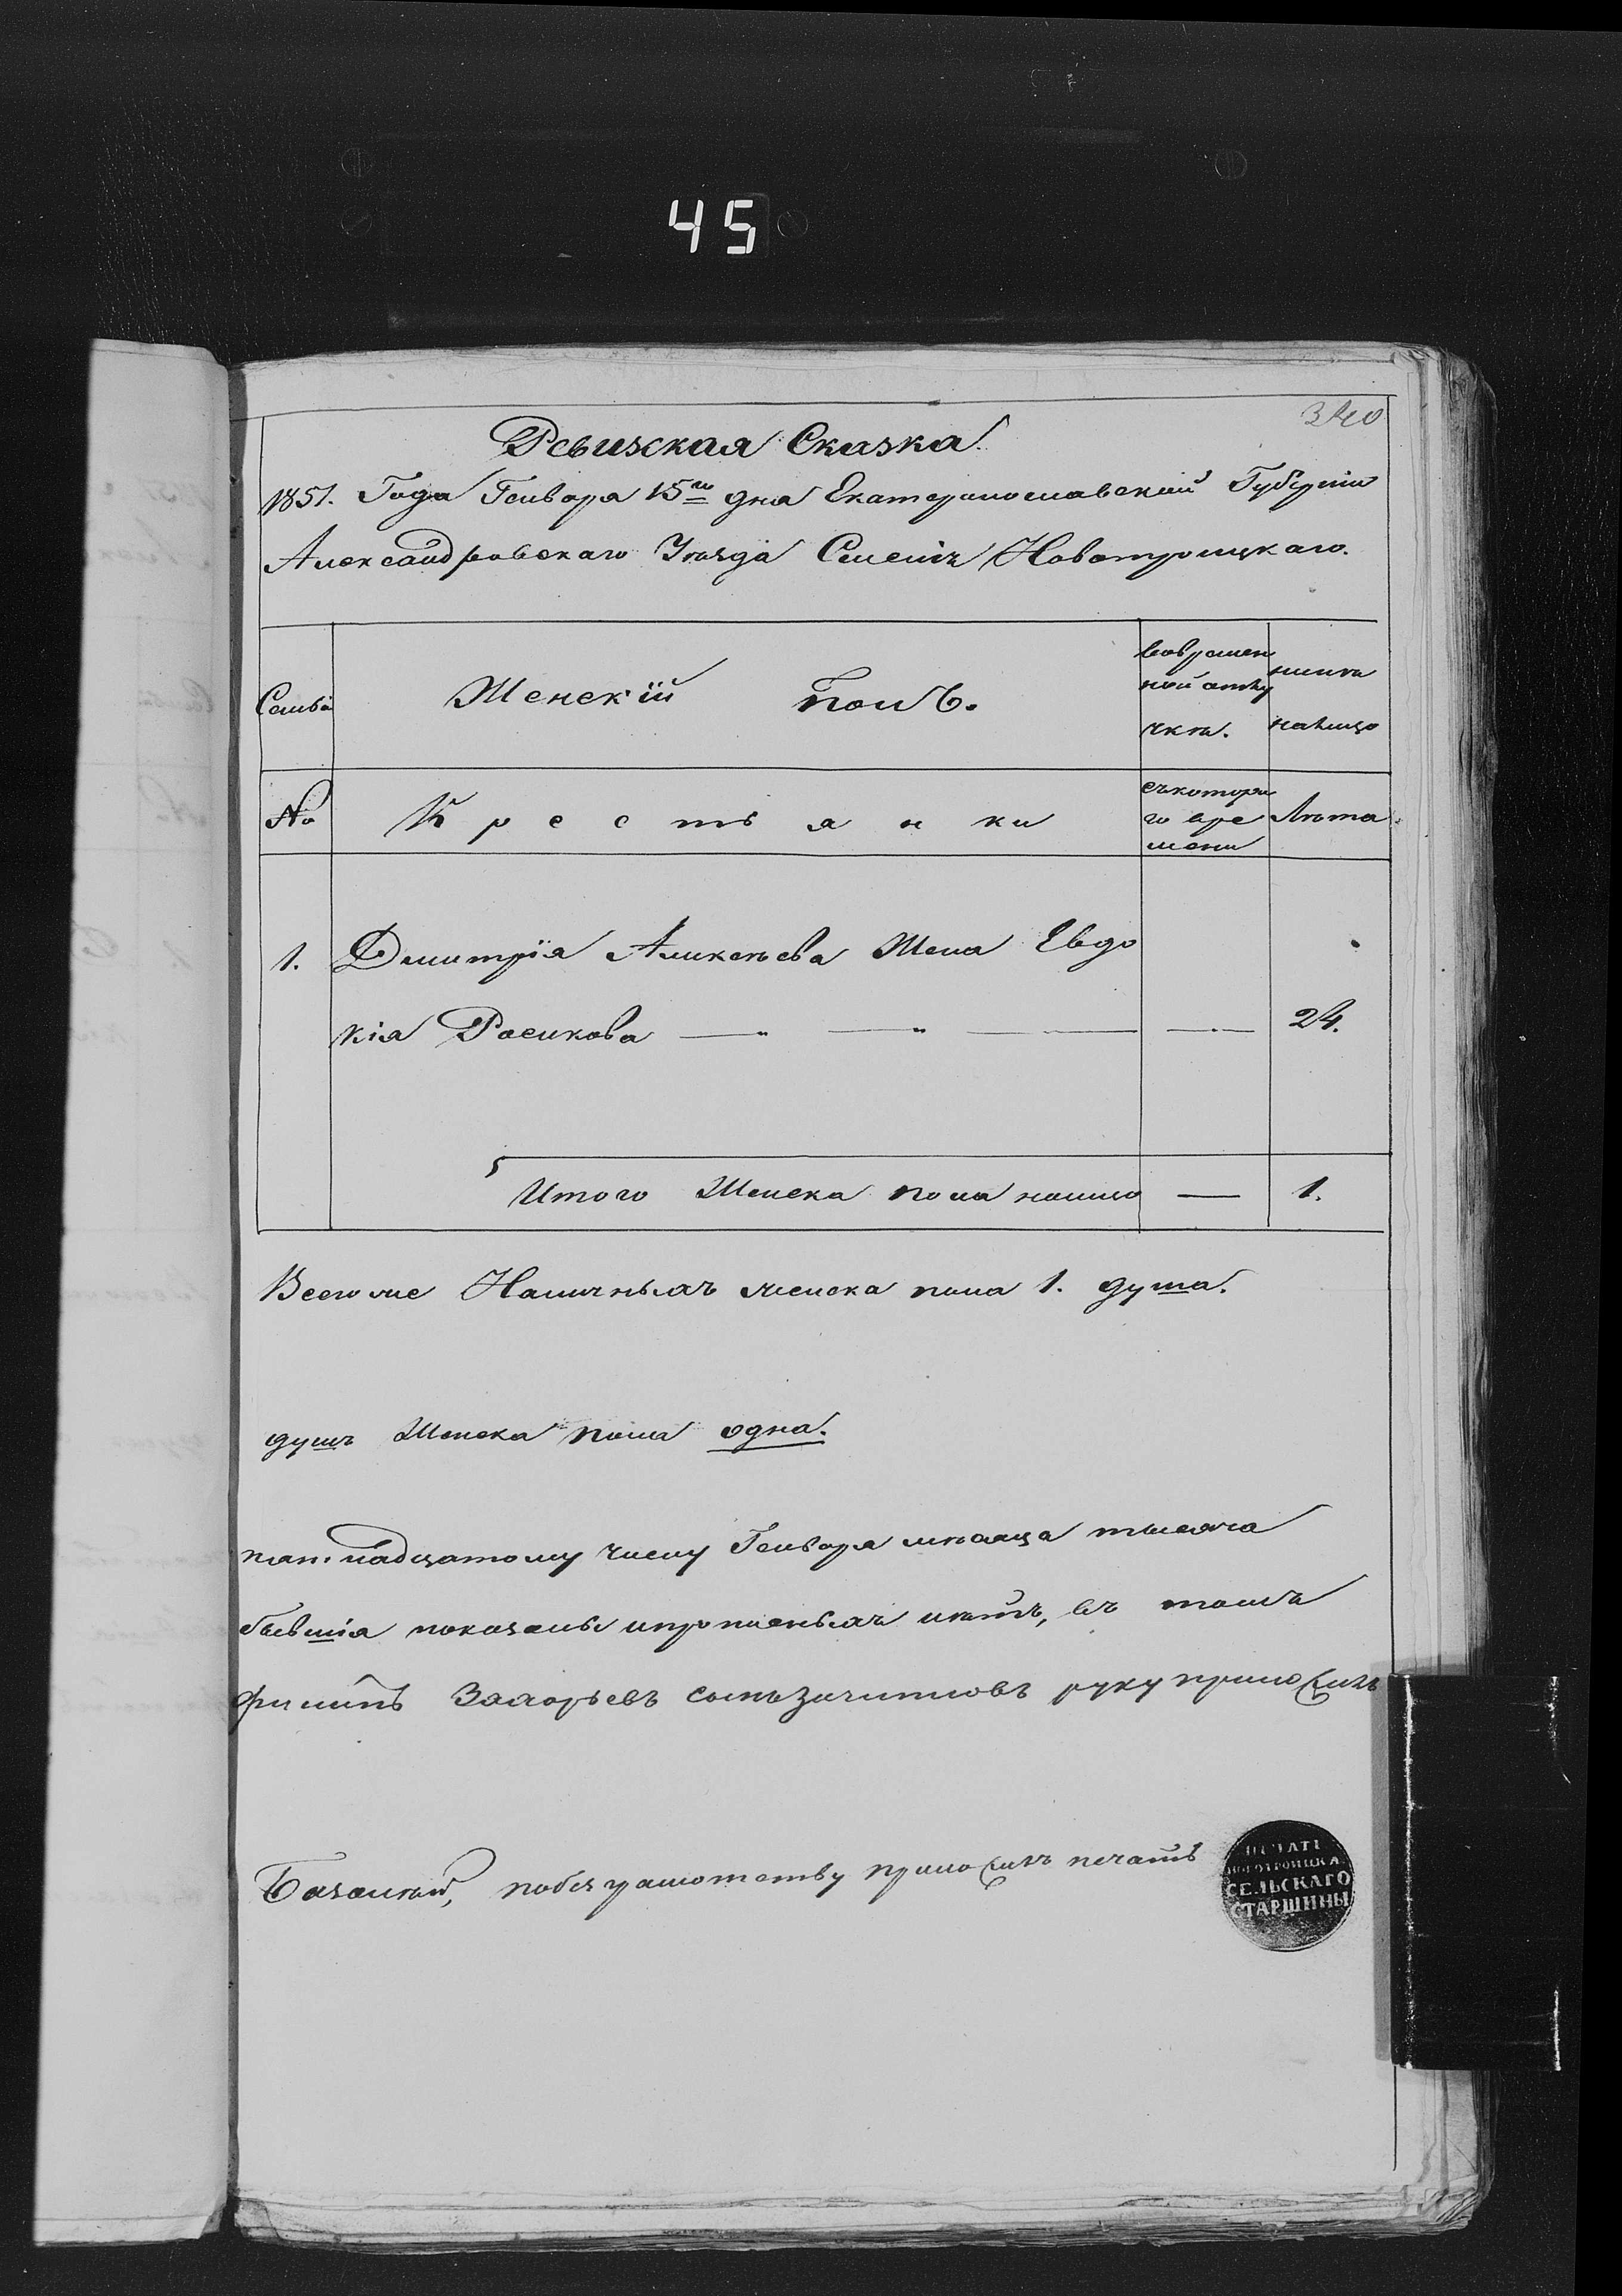 45
340
Ревижская Сказка.
1851. Года Генваря 15го дня Екатеринославской Губернiи
Александровскаго Уѣзда Селенiя Новотроицкаго.
Семьи
Женскiй полъ.
вовремен
ной отлу
чкѣ.
нынѣ
налицо
№
Крестьянки
съкотора
го вре
мени
Лѣта.
1. Дмитрiя Аликѣева Жена Евдо
кiя 24.
Итого Женска пола налицо — 1.
Всегоже Наличныхъ женска пола 1. душа.
душъ Женска пола одна.
пятнадцатому числу Генваря мѣсяца тысяча
бывшiя показаны ипрописныхъ нѣтъ, въ томъ
Филипъ руку приложилъ
побезграмотству приложилъ печать
ПЕЧАТЬ
НОВОТРОИЦКА
СЕЛЬСКАГО
СТАРШИНЫ